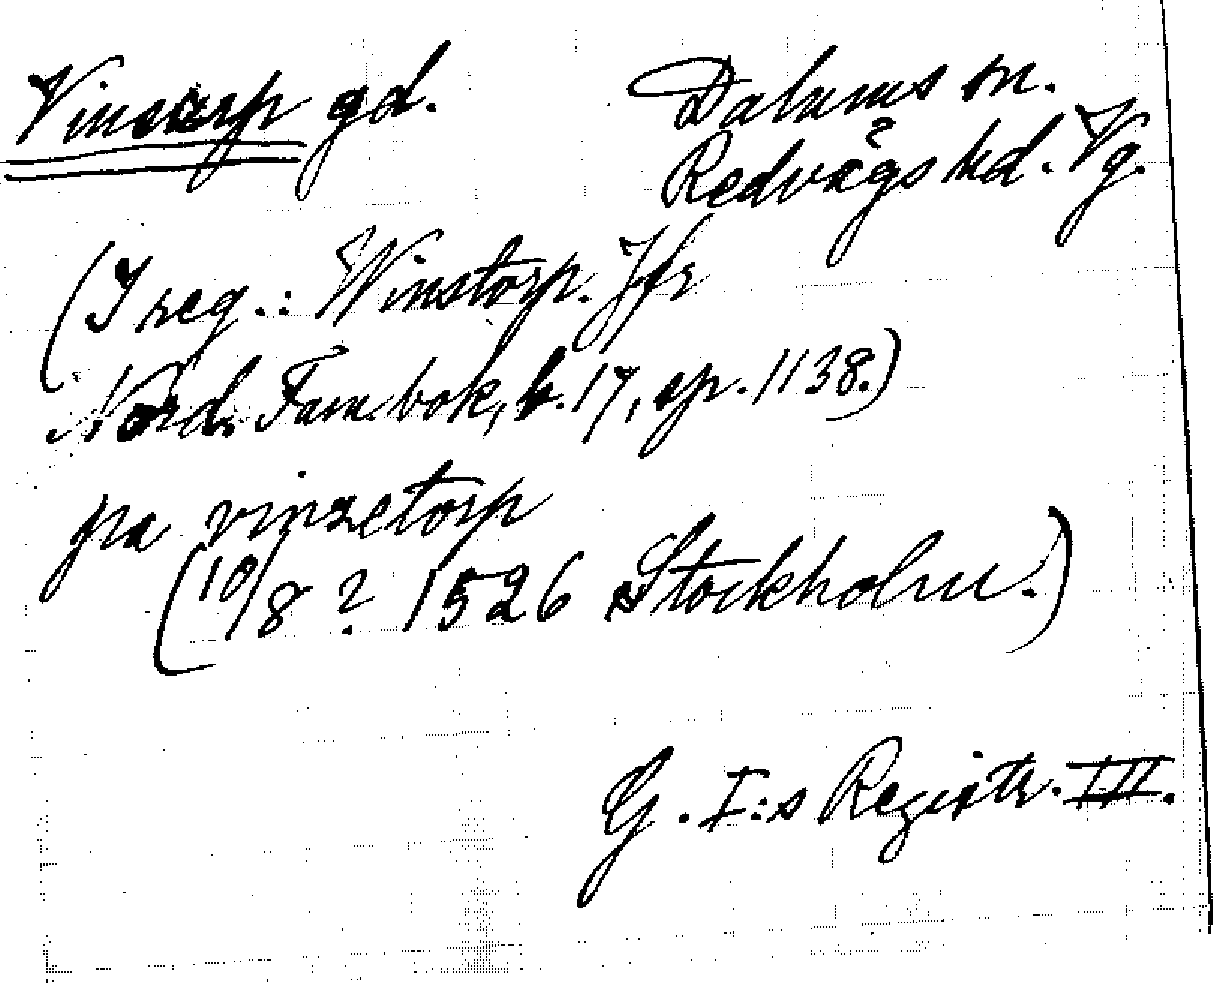 Vinstorp gd.
Dalums sn.
Redvägs hd. Vg.
(I reg.: Winstorp. Jfr
Nord. Fam. bok, b. 17, sp. 1138.)
pa vinzetorp
(10/8 ? 1526 Stockholm.)
G. I:s Registr. III.